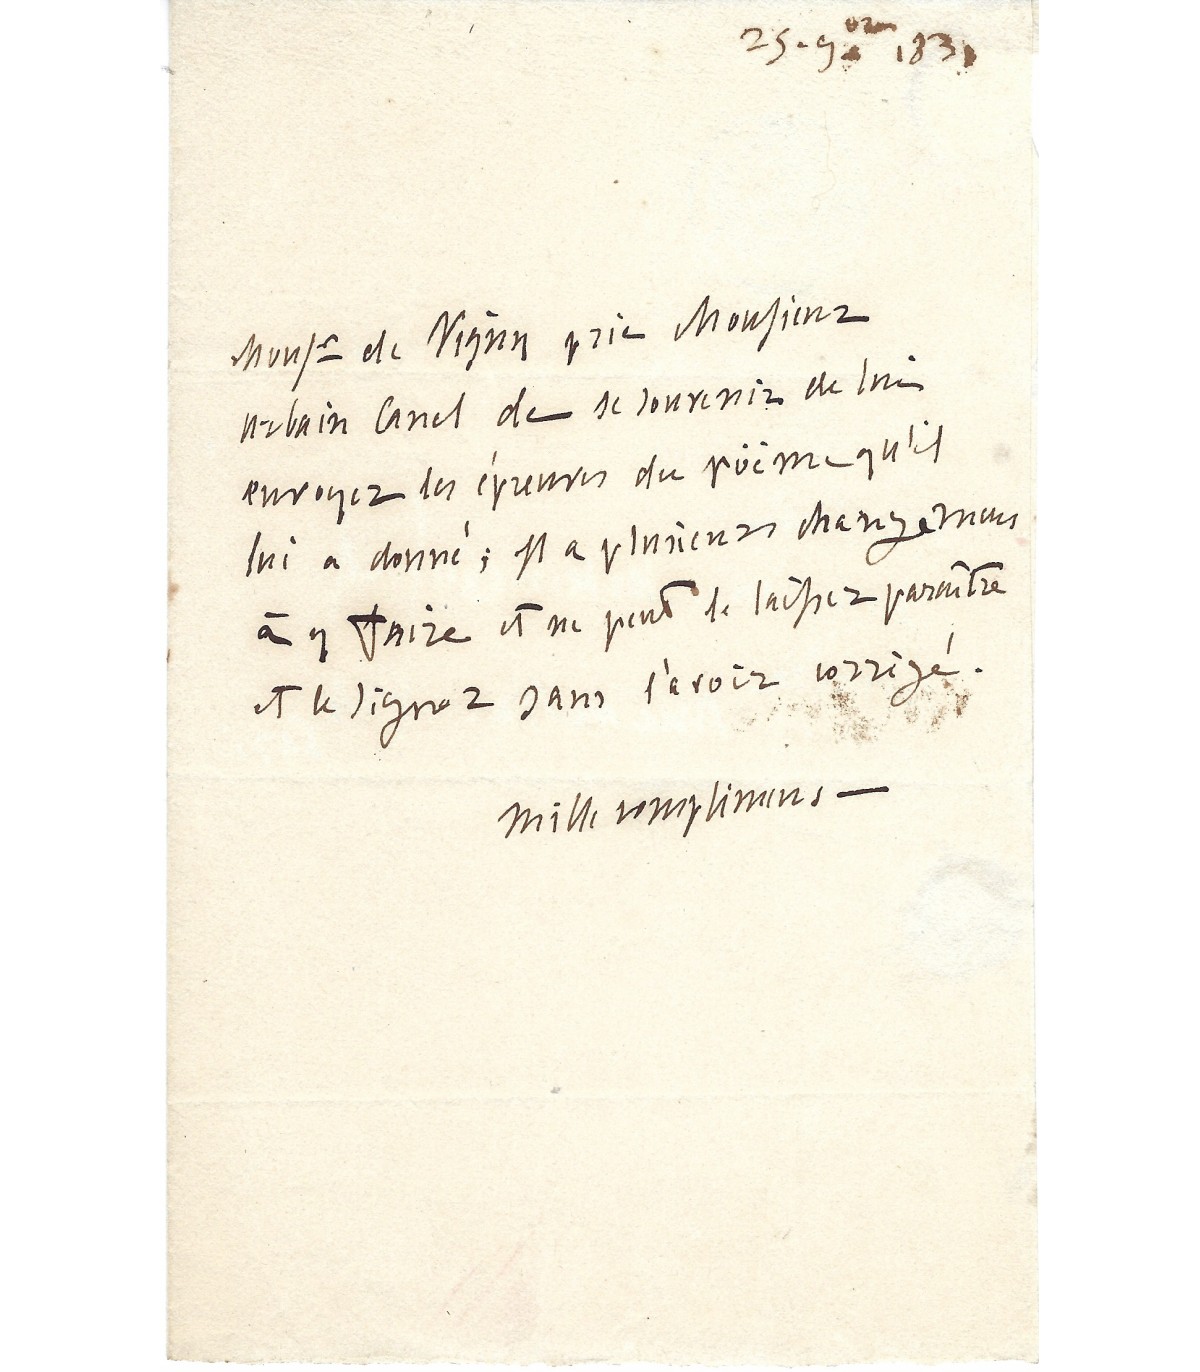 25. 9bre 1831
Monsr de Vigny prie Monsieur
Urbain Canel de se souvenir de lui
envoyer les épreuves du poëme qu'il
lui a donné ; il a plusieurs changemens
à y faire et ne peut le laisser paraître
et le signer sans l'avoir corrigé.
Mille complimens —